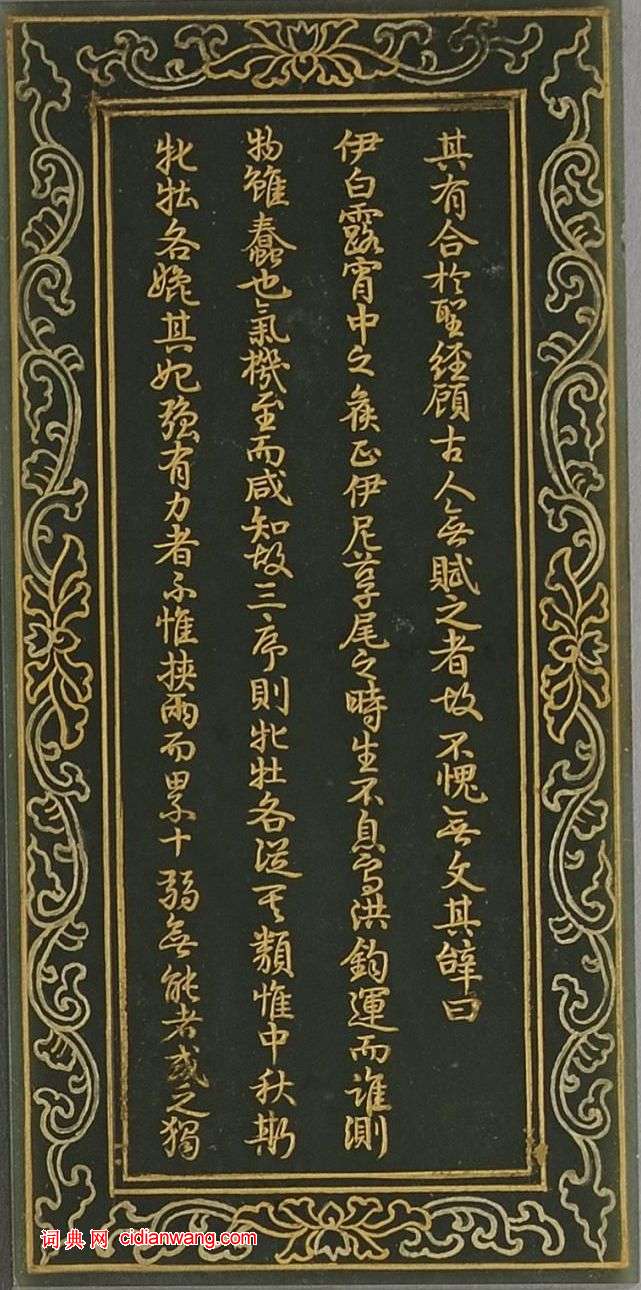 其有合於聖經顧古人無賦之者故不愧無文其辭曰
伊白露宵中之候正伊尼孳尾之時生不息焉洪鈞運而誰測
物雖蠢也氣機至而咸知故三序則牝牡各從其類惟中秋斯
牝牡各媲其妃強有力者不惟挾兩而累十弱無能者或之獨
词典网 cidianwang.com